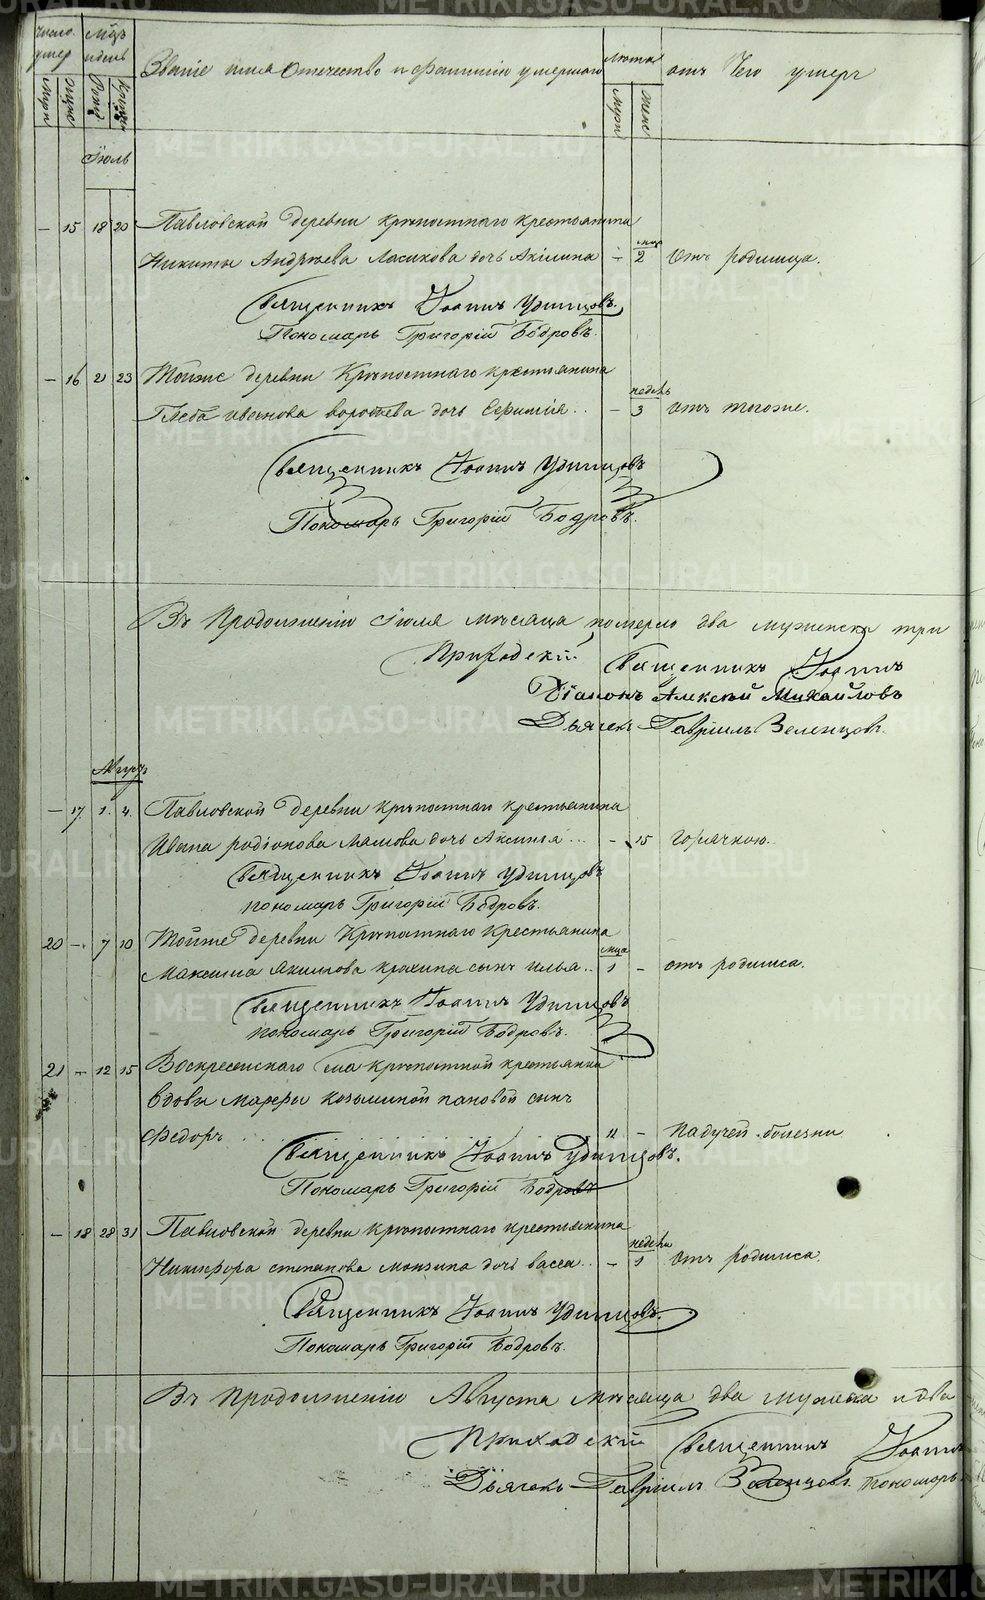 Число умер
Мцъ и день
Званіе имя Отечество и Фамилія умершаго
Лѣта
отъ Чего умеръ
Муж
Женс
Муж
Женс
Іюль
— 15 18 20 Павловской деревни крѣпостнаго крестьянина
мца
Никиты Андреева Ласикова дочь Акілина — 2 Отъ родимца.
Священникъ Іоаннъ Удинцовъ.
Пономарь Григорій Бодровъ.
— 16 21 23 Тойже деревни Крѣпостнаго крестьянина
недель
Глеба иванова дочь Ефимія .. — 3 отъ тогоже.
Священникъ Іоаннъ Удинцовъ
Пономарь Григорій Бодровъ.
Въ Продолженіи Іюля мѣсяца померло два мужеска три
Приходскій Священникъ Іоаннъ
Діаконъ Алексѣй Михайловъ
Дьячекъ Гавріилъ Зеленцовъ.
Августъ
— 17 1. 4. Павловской деревни крѣпостнаго крестьянина
Ивана родіонова дочь Аксинья ... — 15 горячкою.
Священникъ Іоаннъ Удинцовъ
пономарь Григорій Бодровъ.
20 — 7 10 Тойже деревни Крѣпостнаго Крестьянина
мца
Максима Якимова сынъ илья .. 1 — отъ родимса.
Священникъ Іоаннъ Удинцовъ
пономарь Григорій Бодровъ.
21 — 12 15 Воскресенскаго села крѣпостной крестьянки
вдовы марфы козьминой пановой сынъ
Федоръ ... 11 — падучей болезни
Священникъ Іоаннъ Удинцовъ.
Пономарь Григорій Бодровъ
— 18 28 31 Павловской деревни крѣпостнаго крестьянина
неделя
Никифора степанова дочь васса .. — 1 Отъ родимса.
Священникъ Іоаннъ Удинцовъ.
Пономарь Григорій Бодровъ.
Въ продолженіи Августа мѣсяца два мужеска и два
Приходскій Священникъ Іоаннъ
Дьячекъ Гавріилъ Зеленцовъ. пономарь
METRIKI.GASO-URAL.RU